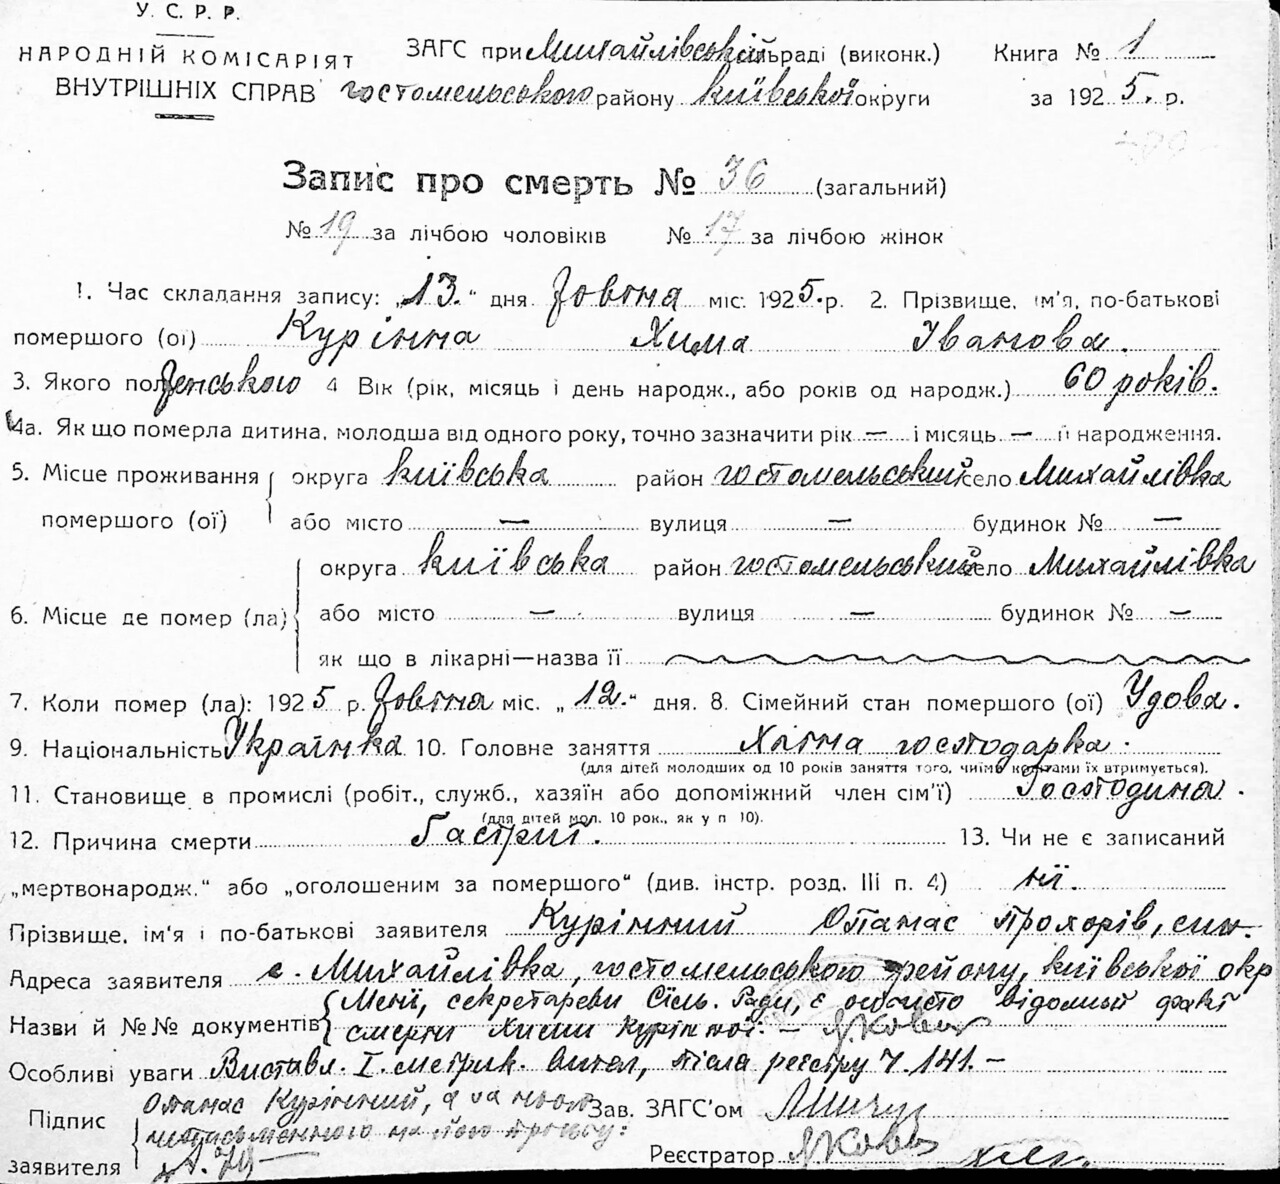 У. С. Р. Р.
НАРОДНІЙ КОМІСАРІЯТ
ВНУТРІШНІХ СПРАВ
ЗАГС при Михайлівській раді (виконк.)
гостомельського району київської округи
Книга № 1
за 1925. р.
Запис про смерть № 36 (загальний)
№ 19 за лічбою чоловіків № 17 за лічбою жінок
1. Час складання запису: „13.“ дня Жовтня міс. 1925. р. 2. Прізвище, ім'я, по-батькові
помершого (ої) Курінна Хима Іванова.
3. Якого пол Женського 4 Вік (рік, місяць і день народж., або років од народж.) 60 років.
4а. Як що померла дитина, молодша від одного року, точно зазначити рік — і місяць — її народження.
5. Місце проживання округа київська район гостомельський село Михайлівка
помершого (ої) або місто — вулиця — будинок № —
округа київська район гостомельський село Михайлівка
6. Місце де помер (ла) або місто — вулиця — будинок № —
як що в лікарні—назва її
7. Коли помер (ла): 1925 р. Жовтня міс. „12.“ дня. 8. Сімейний стан помершого (ої) Удова.
9. Національність Українка 10. Головне заняття Хатня господарка.
(для дітей молодших од 10 років заняття того, чиїми коштами їх втримується).
11. Становище в промислі (робіт., служб., хазяїн або допоміжний член сім'ї) Господиня.
(для дітей мол. 10 рок., як у п 10).
12. Причина смерти 13. Чи не є записаний
„мертвонародж.“ або „оголошеним за помершого“ (див. інстр. розд. III п. 4) ні.
Прізвище, ім'я і по-батькові заявителя Курінний Опанас Прохорів, син.
Адреса заявителя с. Михайлівка, гостомельського району, київської окр
Назви й №№ документів Мені, секретареви Сіль. Ради, є особисто відомий факт
смерти Хими Курінної. —
Особливі уваги Виставл. І. метрик. витяг, після реєстру ч. 141. —
Підпис
заявителя
Опанас Курінний, а за нього
неписьменного на його прозьбу:
Зав. ЗАГС'ом
Реєстратор